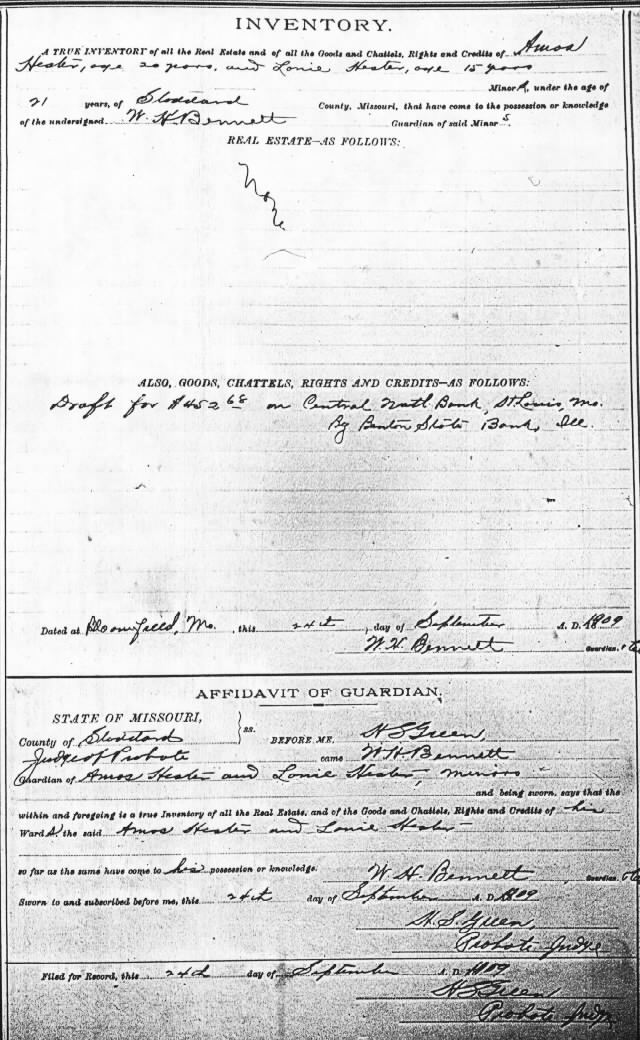 INVENTORY.
A TRUE INVENTORY of all the Real Estate and of all the Goods and Chattels, Rights and Credits of Amos
Hester, age 20 years, and Lonie Hester, age 15 years
Minors, under the age of
21 years, of Stoddard County, Missouri, that have come to the possession or knowledge
of the undersigned W. H. Bennett Guardian of said Minors
REAL ESTATE—AS FOLLOWS:
None
ALSO, GOODS, CHATTELS, RIGHTS AND CREDITS—AS FOLLOWS:
Draft for $452 68 on Central Natl Bank, St Louis, Mo.
By Benton State Bank, Ill.
Dated at Bloomfield, Mo. , this 24th , day of September A. D. 1909
W. H. Bennett Guardian,
AFFIDAVIT OF GUARDIAN.
STATE OF MISSOURI,
County of Stoddard } ss. BEFORE ME, H S Green
Judge of Probate came W H Bennett
Guardian of Amos Hester and Lonie Hester, minors
and being sworn, says that the
within and foregoing is a true Inventory of all the Real Estate, and of the Goods and Chattels, Rights and Credits of his
Wards, the said Amos Hester and Lonie Hester
so far as the same have come to his possession or knowledge. W. H. Bennett Guardian.
Sworn to and subscribed before me, this 24th day of September A. D. 1909
H. S. Green,
Probate Judge
Filed for Record, this 24th day of September A. D. 1909
H S Green
Probate Judge